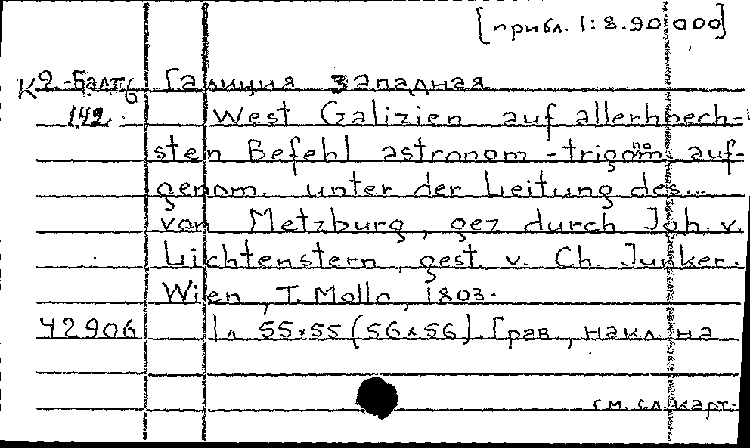 [прибл. 1:8.90 000]
К 2-Балт 6 Галиция западная
142. West Galizien auf allerhhech-
sten Befehl astronom-trigonom. auf-
genom. unter der Leitung des...
von Metzburg, gez durch Joh. v.
Lichtenstern, gest. v. Ch. Junker.
Wien, T. Mollo, 1803.
42906 1 л 55×55 (56×56). Грав., накл на
см. сл. карт.